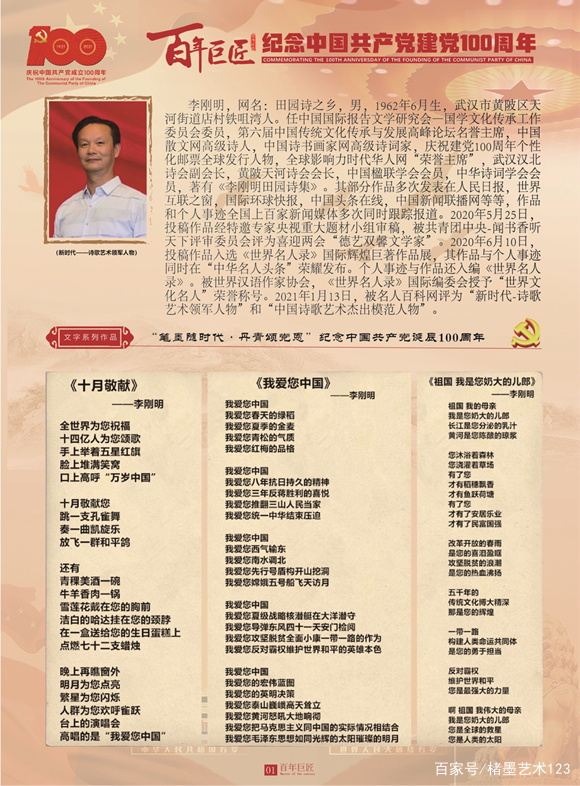 100
1921 2021
庆祝中国共产党成立100周年
The 100th Anniversary of the Founding of
The Communist Party of China
百年巨匠
纪念中国共产党建党100周年
COMMEMORATING THE 100TH ANNIVERSARY OF THE FOUNDING OF THE COMMUNIST PARTY OF CHINA
李刚明，网名：田园诗之乡，男，1962年6月生，武汉市黄陂区天
河街道店村铁咀湾人。任中国国际报告文学研究会—国学文化传承工作
委员会委员，第六届中国传统文化传承与发展高峰论坛名誉主席，中国
散文网高级诗人，中国诗书画家网高级诗词家，庆祝建党100周年个性
化邮票全球发行人物，全球影响力时代华人网“荣誉主席”，武汉汉北
诗会副会长，黄陂天河诗会会长，中国楹联学会会员，中华诗词学会会
员，著有《李刚明田园诗集》。其部分作品多次发表在人民日报，世界
互联之窗，国际环球快报，中国头条在线，中国新闻联播网等等，作品
和个人事迹全国上百家新闻媒体多次同时跟踪报道。2020年5月25日，
投稿作品经特邀专家央视重大题材小组审稿，被共青团中央-闻书香听
天下评审委员会评为喜迎两会“德艺双馨文学家”。2020年6月10日，
投稿作品入选《世界名人录》国际辉煌巨著作品展，其作品与个人事迹
同时在“中华名人头条”荣耀发布。个人事迹与作品还入编《世界名人
录》。被世界汉语作家协会，《世界名人录》国际编委会授予“世界文
化名人”荣誉称号。2021年1月13日，被名人百科网评为“新时代-诗歌
艺术领军人物”和“中国诗歌艺术杰出模范人物”。
（新时代——诗歌艺术领军人物）
文字系列作品
“笔墨随时代·丹青颂党恩”纪念中国共产党诞辰100周年
《十月敬献》
——李刚明
全世界为您祝福
十四亿人为您颂歌
手上举着五星红旗
脸上堆满笑窝
口上高呼“万岁中国”
十月敬献您
跳一支孔雀舞
奏一曲凯旋乐
放飞一群和平鸽
还有
青稞美酒一碗
牛羊香肉一锅
雪莲花戴在您的胸前
洁白的哈达挂在您的颈脖
在一盒送给您的生日蛋糕上
点燃七十二支蜡烛
晚上再瞧窗外
明月为您点亮
繁星为您闪烁
人群为您欢呼雀跃
台上的演唱会
高唱的是“我爱您中国”
《我爱您中国》
——李刚明
我爱您中国
我爱您春天的绿稻
我爱您夏季的金麦
我爱您青松的气质
我爱您红梅的品格
我爱您中国
我爱您八年抗日持久的精神
我爱您三年反蒋胜利的喜悦
我爱您推翻三山人民当家
我爱您统一中华结束压迫
我爱您中国
我爱您西气输东
我爱您南水调北
我爱您先行号盾构开山挖洞
我爱您嫦娥五号船飞天访月
我爱您中国
我爱您夏级战略核潜艇在大洋潜守
我爱您导弹东风四十一天安门检阅
我爱您攻坚脱贫全面小康一带一路的作为
我爱您反对霸权维护世界和平的英雄本色
我爱您中国
我爱您的宏伟蓝图
我爱您的英明决策
我爱您泰山巍峨高天耸立
我爱您黄河怒吼大地响彻
我爱您把马克思主义同中国的实际情况相结合
我爱您毛泽东思想如同光辉的太阳璀璨的明月
《祖国 我是您奶大的儿郎》
——李刚明
祖国 我的母亲
我是您奶大的儿郎
长江是您分泌的乳汁
黄河是您陈酿的琼浆
您沐浴着森林
您浇灌着草场
有了您
才有稻穗飘香
才有鱼跃荷塘
有了您
才有了安居乐业
才有了民富国强
改革开放的春雨
是您的喜泪盈眶
攻坚脱贫的浪潮
是您的热血沸扬
五千年的
传统文化博大精深
那是您的辉煌
一带一路
构建人类命运共同体
是您的勇于担当
反对霸权
维护世界和平
您是最强大的力量
啊 祖国 我伟大的母亲
我是您奶大的儿郎
您是全球的救星
您是人类的太阳
01
百年巨匠
百家号/楮墨艺术123